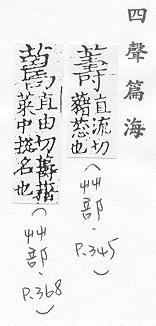 四聲篇海
薵
直流切
藸葱也
(艸部. P.345)
直由切薵藸
菜中名也
(艸部. P.368)